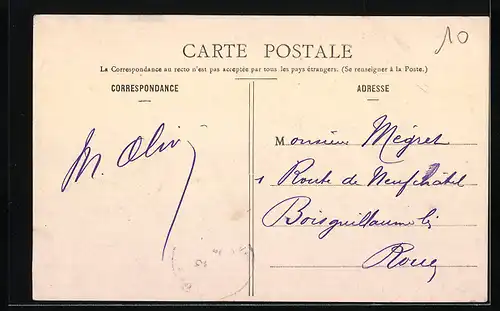 10
CARTE POSTALE
La Correspondance au recto n'est pas acceptée par tous les pays étrangers. (Se renseigner à la Poste.)
CORRESPONDANCE
M. Oliv
ADRESSE
Monsieur Mégret
1 Route de Neufchâtel
Boisguillaume lis
Rouen